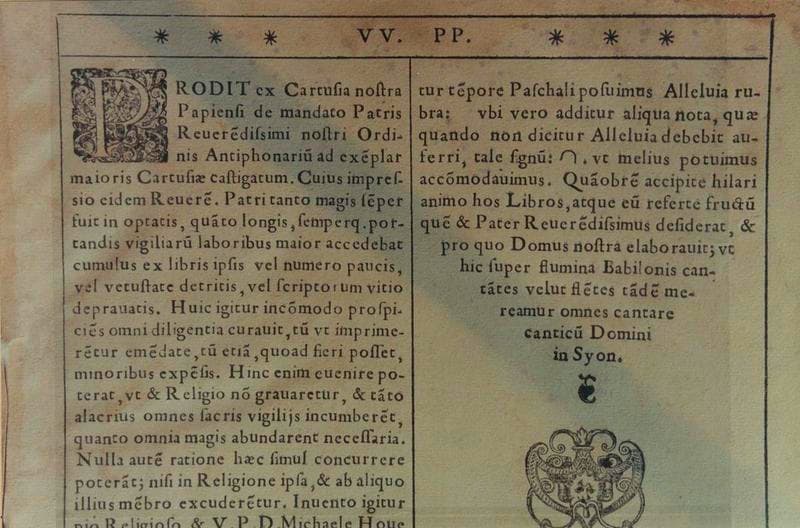 * * * VV. PP. * * *
PRODIT ex Cartuſia noſtra
Papienſi de mandato Patris
Reuerēdiſsimi noſtri Ordi-
nis Antiphonariū ad exēplar
maioris Cartuſiæ caſtigatum. Cuius impreſ-
sio eidem Reuerē. Patri tanto magis ſēper
fuit in optatis, quāto longis, ſemperq. por-
tandis vigiliarū laboribus maior accedebat
cumulus ex libris ipſis vel numero paucis,
vel vetuſtate detritis, vel ſcriptorum vitio
deprauatis. Huic igitur incōmodo proſpi-
ciēs omni diligentia curauit, tū vt imprime-
rētur emēdate, tū etiā, quoad fieri poſſet,
minoribus expēſis. Hinc enim euenire po-
terat, vt & Religio nō grauaretur, & tāto
alacrius omnes ſacris vigilijs incumberēt,
quanto omnia magis abundarent neceſſaria.
Nulla autē ratione hæc ſimul concurrere
poterāt; niſi in Religione ipſa, & ab aliquo
illius mēbro excuderētur. Inuento igitur
pio Religioſo & V. P. D. Michaele Houe
tur tēpore Paſchali poſuimus Alleluia ru-
bra: vbi vero additur aliqua nota, quæ
quando non dicitur Alleluia debebit au-
ferri, tale ſignū: ⌒ . vt melius potuimus
accōmodauimus. Quāobrē accipite hilari
animo hos Libros, atque eū referte fructū
quē & Pater Reuerēdiſsimus deſiderat, &
pro quo Domus noſtra elaborauit; vt
hic ſuper flumina Babilonis can-
tātes velut flētes tādē me-
reamur omnes cantare
canticū Domini
in Syon.